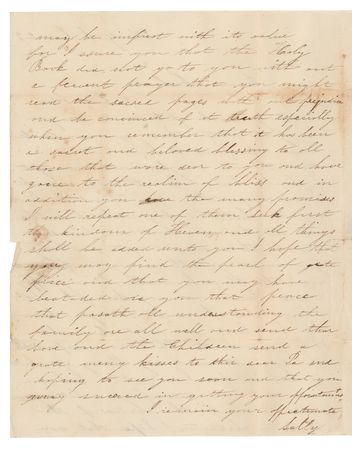 may be imprest with its value
for I assure you that the Holy
Book did not go to you with out
a fervent prayer that you might
read the sacred pages with out prejudice
and be convinced of it truth especially
when you remember that it has been
a sweet and beloved blessing to all
those that were dear to you and have
gone to the realim of bliss and in
addition you see the many promises
I will repeat one of them Seek first
the kindom of Heaven and all things
shall be added unto you I hope that
you may find the pearl of grate
price and that you may have
on you that peace
that paseth all understanding the
family are all well and send thar
love and the Children send a
grate meny kisses to thir dear Pa and
hoping to see you soon and that you
may succeed in getting your
I remain your affectionate
Sally